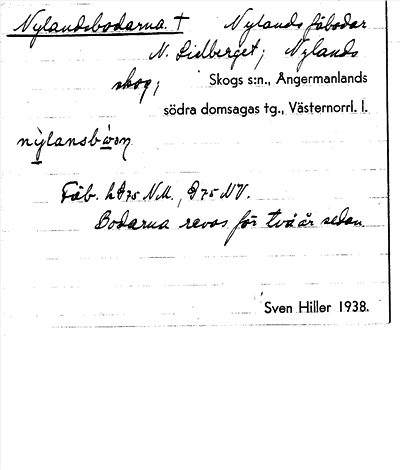 Nylandsbodarna † Nylands fäbodar
N. Lidberget; Nylands
skog; Skogs s:n., Ångermanlands
södra domsagas tg., Västernorrl. l.
Fäb.
Bodarna revos för två år sedan.
Sven Hiller 1938.